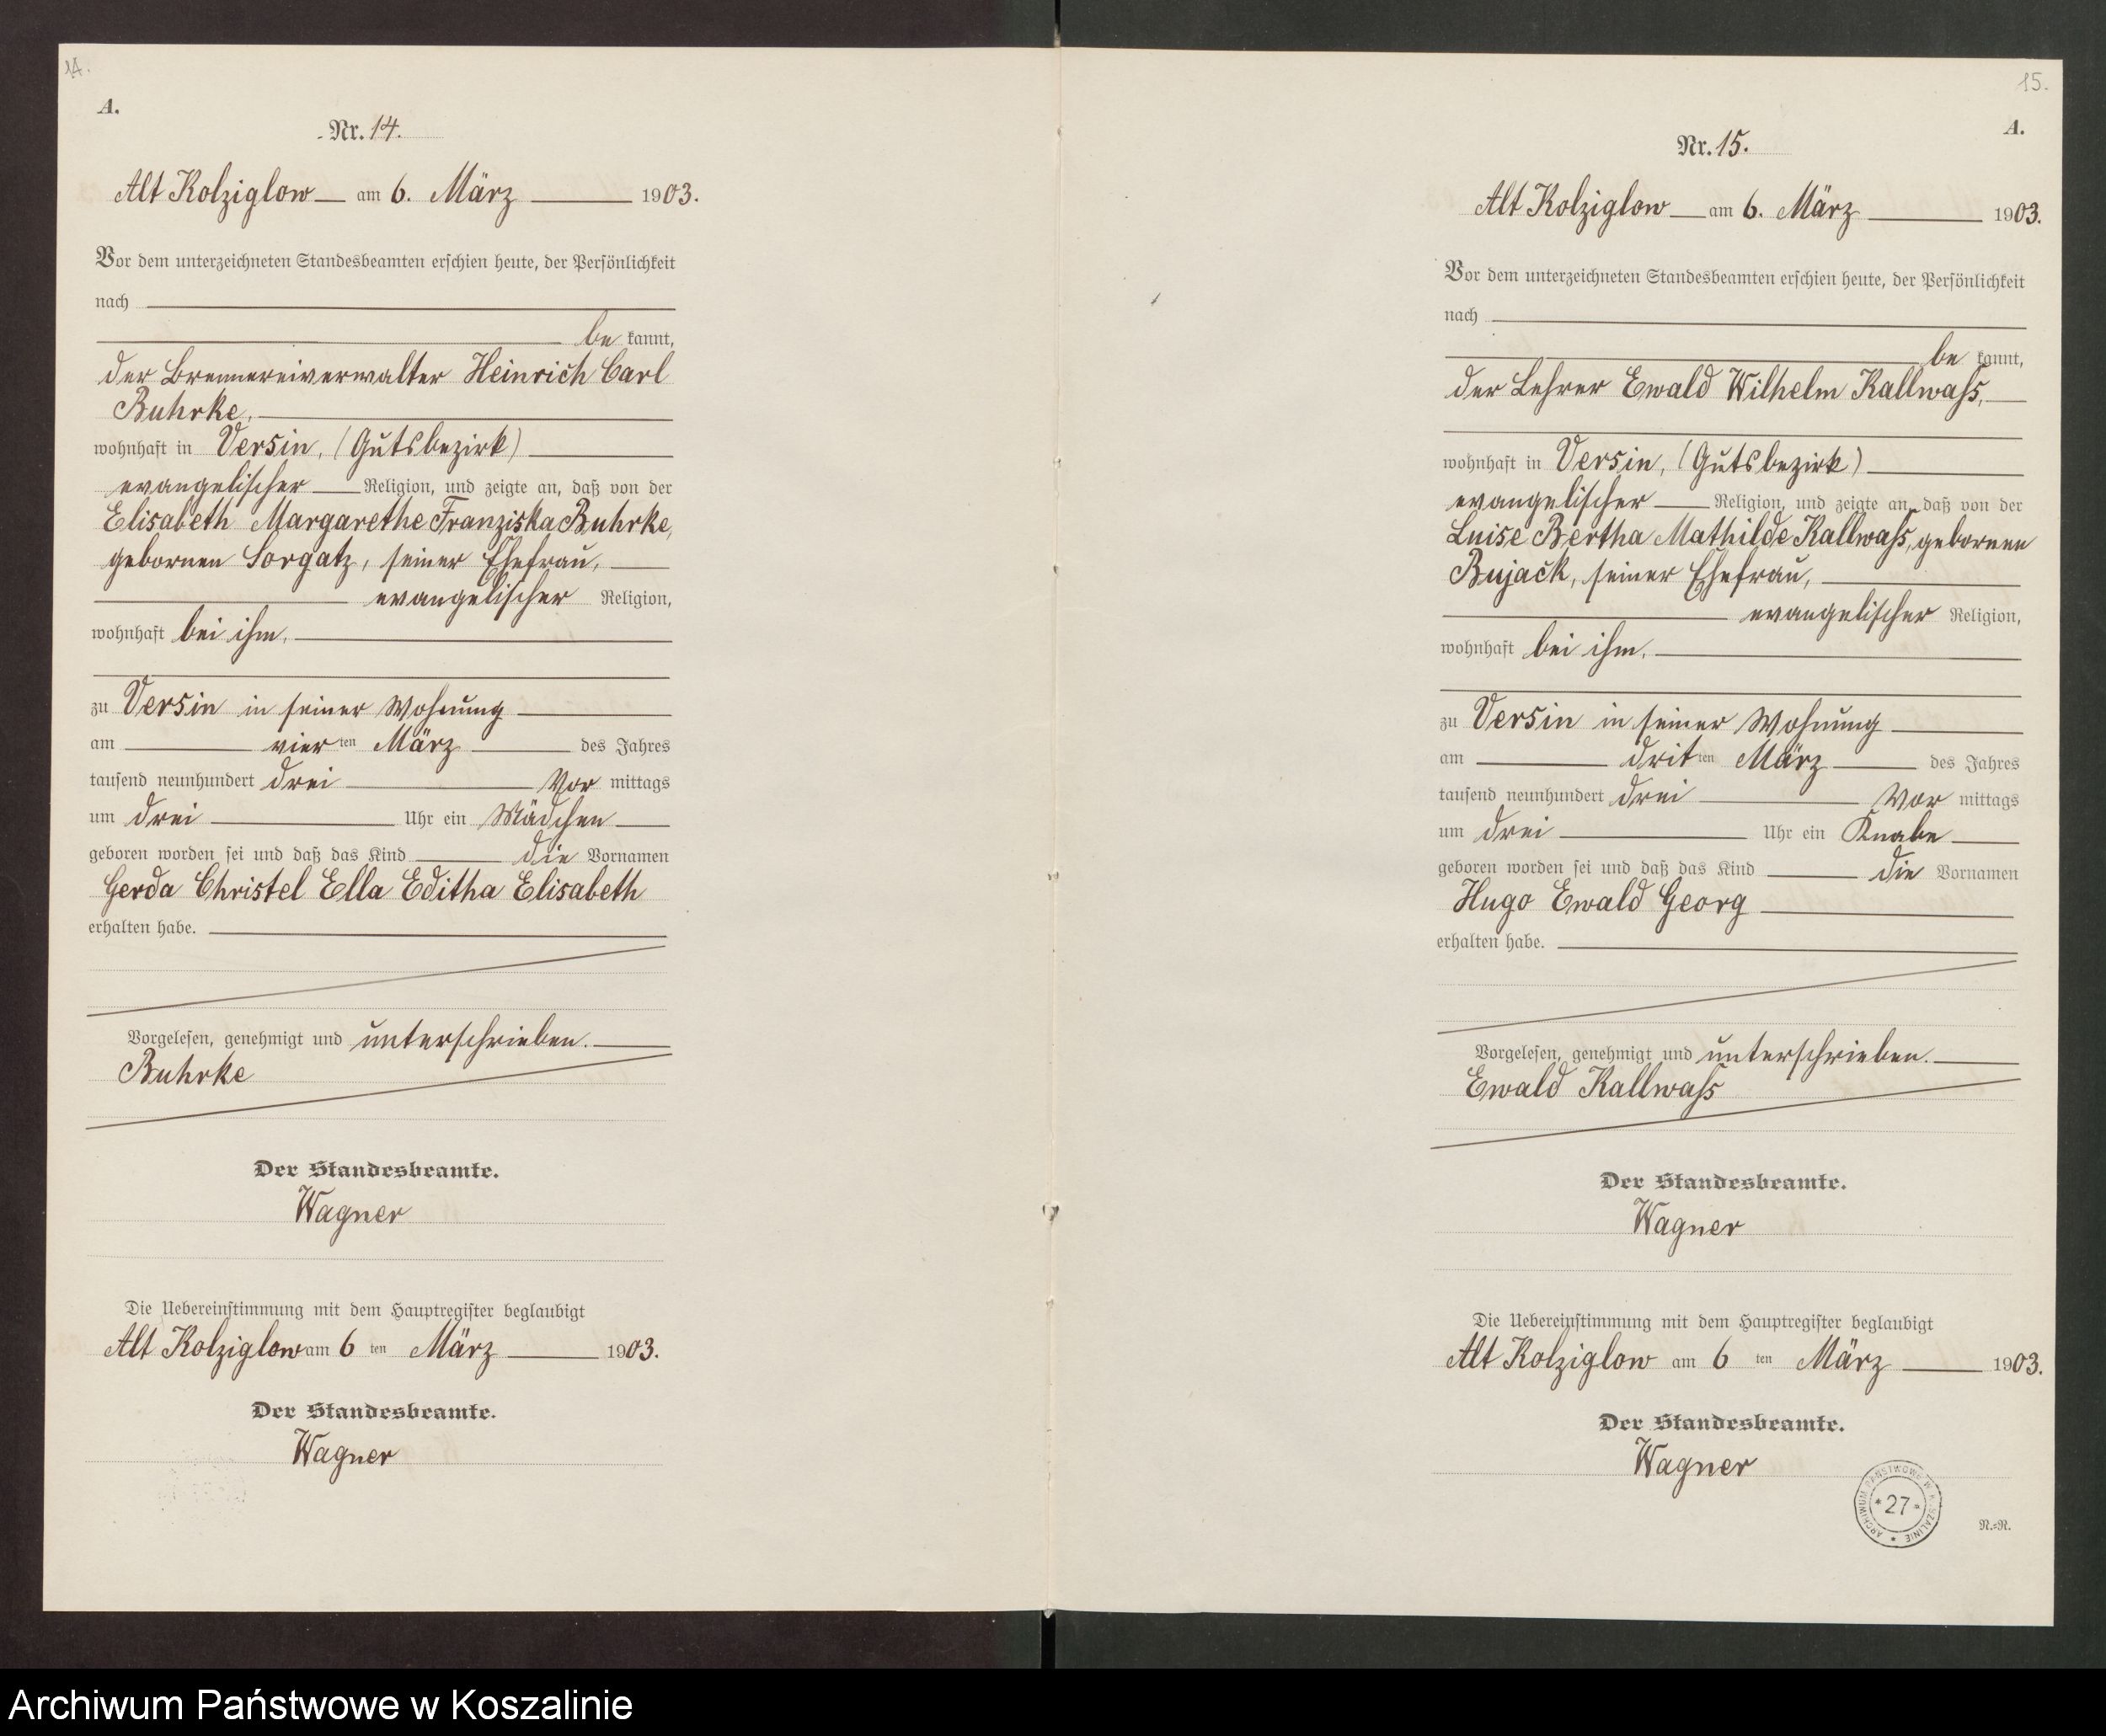 14.
A.
Nr. 14.
Alt Kolziglow am 6. März 1903.
Vor dem unterzeichneten Standesbeamten erschien heute, der Persönlichkeit
nach
be kannt,
der Brennereiverwalter Heinrich Carl
Buhrke,
wohnhaft in Versin, (Gutsbezirk)
evangelischer Religion, und zeigte an, daß von der
Elisabeth Margarethe Franziska Buhrke,
gebornen Sorgatz, seiner Ehefrau,
evangelischer Religion,
wohnhaft bei ihm,
zu Versin in seiner Wohnung
am vier ten März des Jahres
tausend neunhundert drei Vor mittags
um drei Uhr ein Mädchen
geboren worden sei und daß das Kind die Vornamen
Gerda Christel Ella Editha Elisabeth
erhalten habe.
Vorgelesen, genehmigt und unterschrieben.
Buhrke
Der Standesbeamte.
Wagner
Die Uebereinstimmung mit dem Hauptregister beglaubigt
Alt Kolziglow am 6 ten März 1903.
Der Standesbeamte.
Wagner
15.
A.
Nr. 15.
Alt Kolziglow am 6. März 1903.
Vor dem unterzeichneten Standesbeamten erschien heute, der Persönlichkeit
nach
be kannt,
der Lehrer Ewald Wilhelm Kallwass,
wohnhaft in Versin, (Gutsbezirk)
evangelischer Religion, und zeigte an, daß von der
Luise Bertha Mathilde Kallwass, gebornen
Bujack, seiner Ehefrau,
evangelischer Religion,
wohnhaft bei ihm,
zu Versin in seiner Wohnung
am drit ten März des Jahres
tausend neunhundert drei Vor mittags
um drei Uhr ein Knabe
geboren worden sei und daß das Kind die Vornamen
Hugo Ewald Georg
erhalten habe.
Vorgelesen, genehmigt und unterschrieben.
Ewald Kallwass
Der Standesbeamte.
Wagner
Die Uebereinstimmung mit dem Hauptregister beglaubigt
Alt Kolziglow am 6 ten März 1903.
Der Standesbeamte.
Wagner
ARCHIWUM PAŃSTWOWE W KOSZALINIE * 27 *
N.=N.
Archiwum Państwowe w Koszalinie